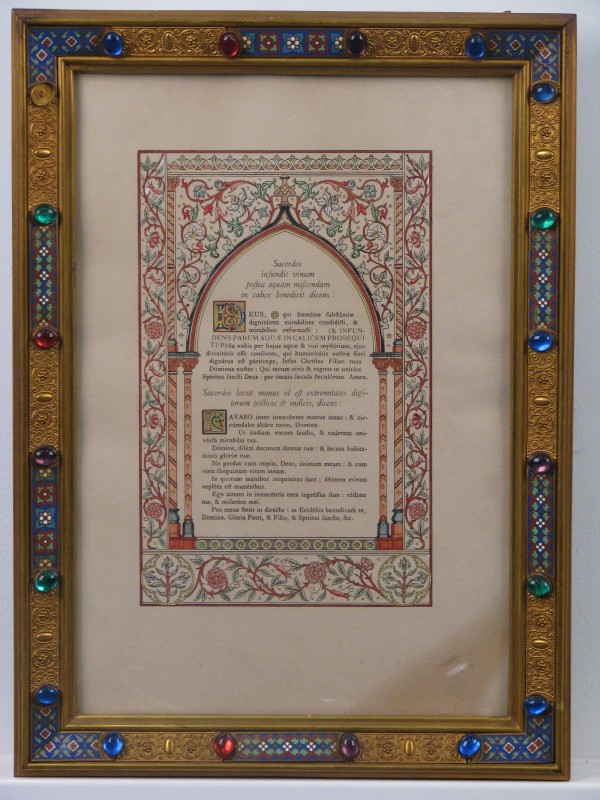 Sacerdos
infundit vinum
postea aquam miscendam
in calice benedicit dicens :
DEUS, ✠ qui humánæ substántiæ
dignitátem mirabíliter condidísti, &
mirabílius reformásti : (& INFUN-
DENS PARUM AQUÆ IN CALICEM PROSEQUI-
TUR) da nobis per hujus aquæ & vini mystérium, ejus
divinitátis esse consórtes, qui humanitátis nostræ fíeri
dignátus est párticeps, Jesus Christus Fílius tuus
Dóminus noster : Qui tecum vivit & regnat in unitáte
Spíritus sancti Deus : per ómnia sæcula sæculórum. Amen.
Sacerdos lavat manus id est extremitates digi-
torum pollicis & indicis, dicens :
LAVABO inter innocéntes manus meas : & cir-
cúmdabo altáre tuum, Dómine.
Ut áudiam vocem laudis, & enárrem uni-
vérsa mirabília tua.
Dómine, diléxi decórem domus tuæ : & locum habita-
tiónis glóriæ tuæ.
Ne perdas cum ímpiis, Deus, ánimam meam : & cum
viris sánguinum vitam meam.
In quorum mánibus iniquitátes sunt ; déxtera eórum
repléta est munéribus.
Ego autem in innocéntia mea ingréssus sum : rédime
me, & miserére mei.
Pes meus stetit in dirécto : in Ecclésiis benedícam te,
Dómine. Glória Patri, & Fílio, & Spirítui sancto, &c.